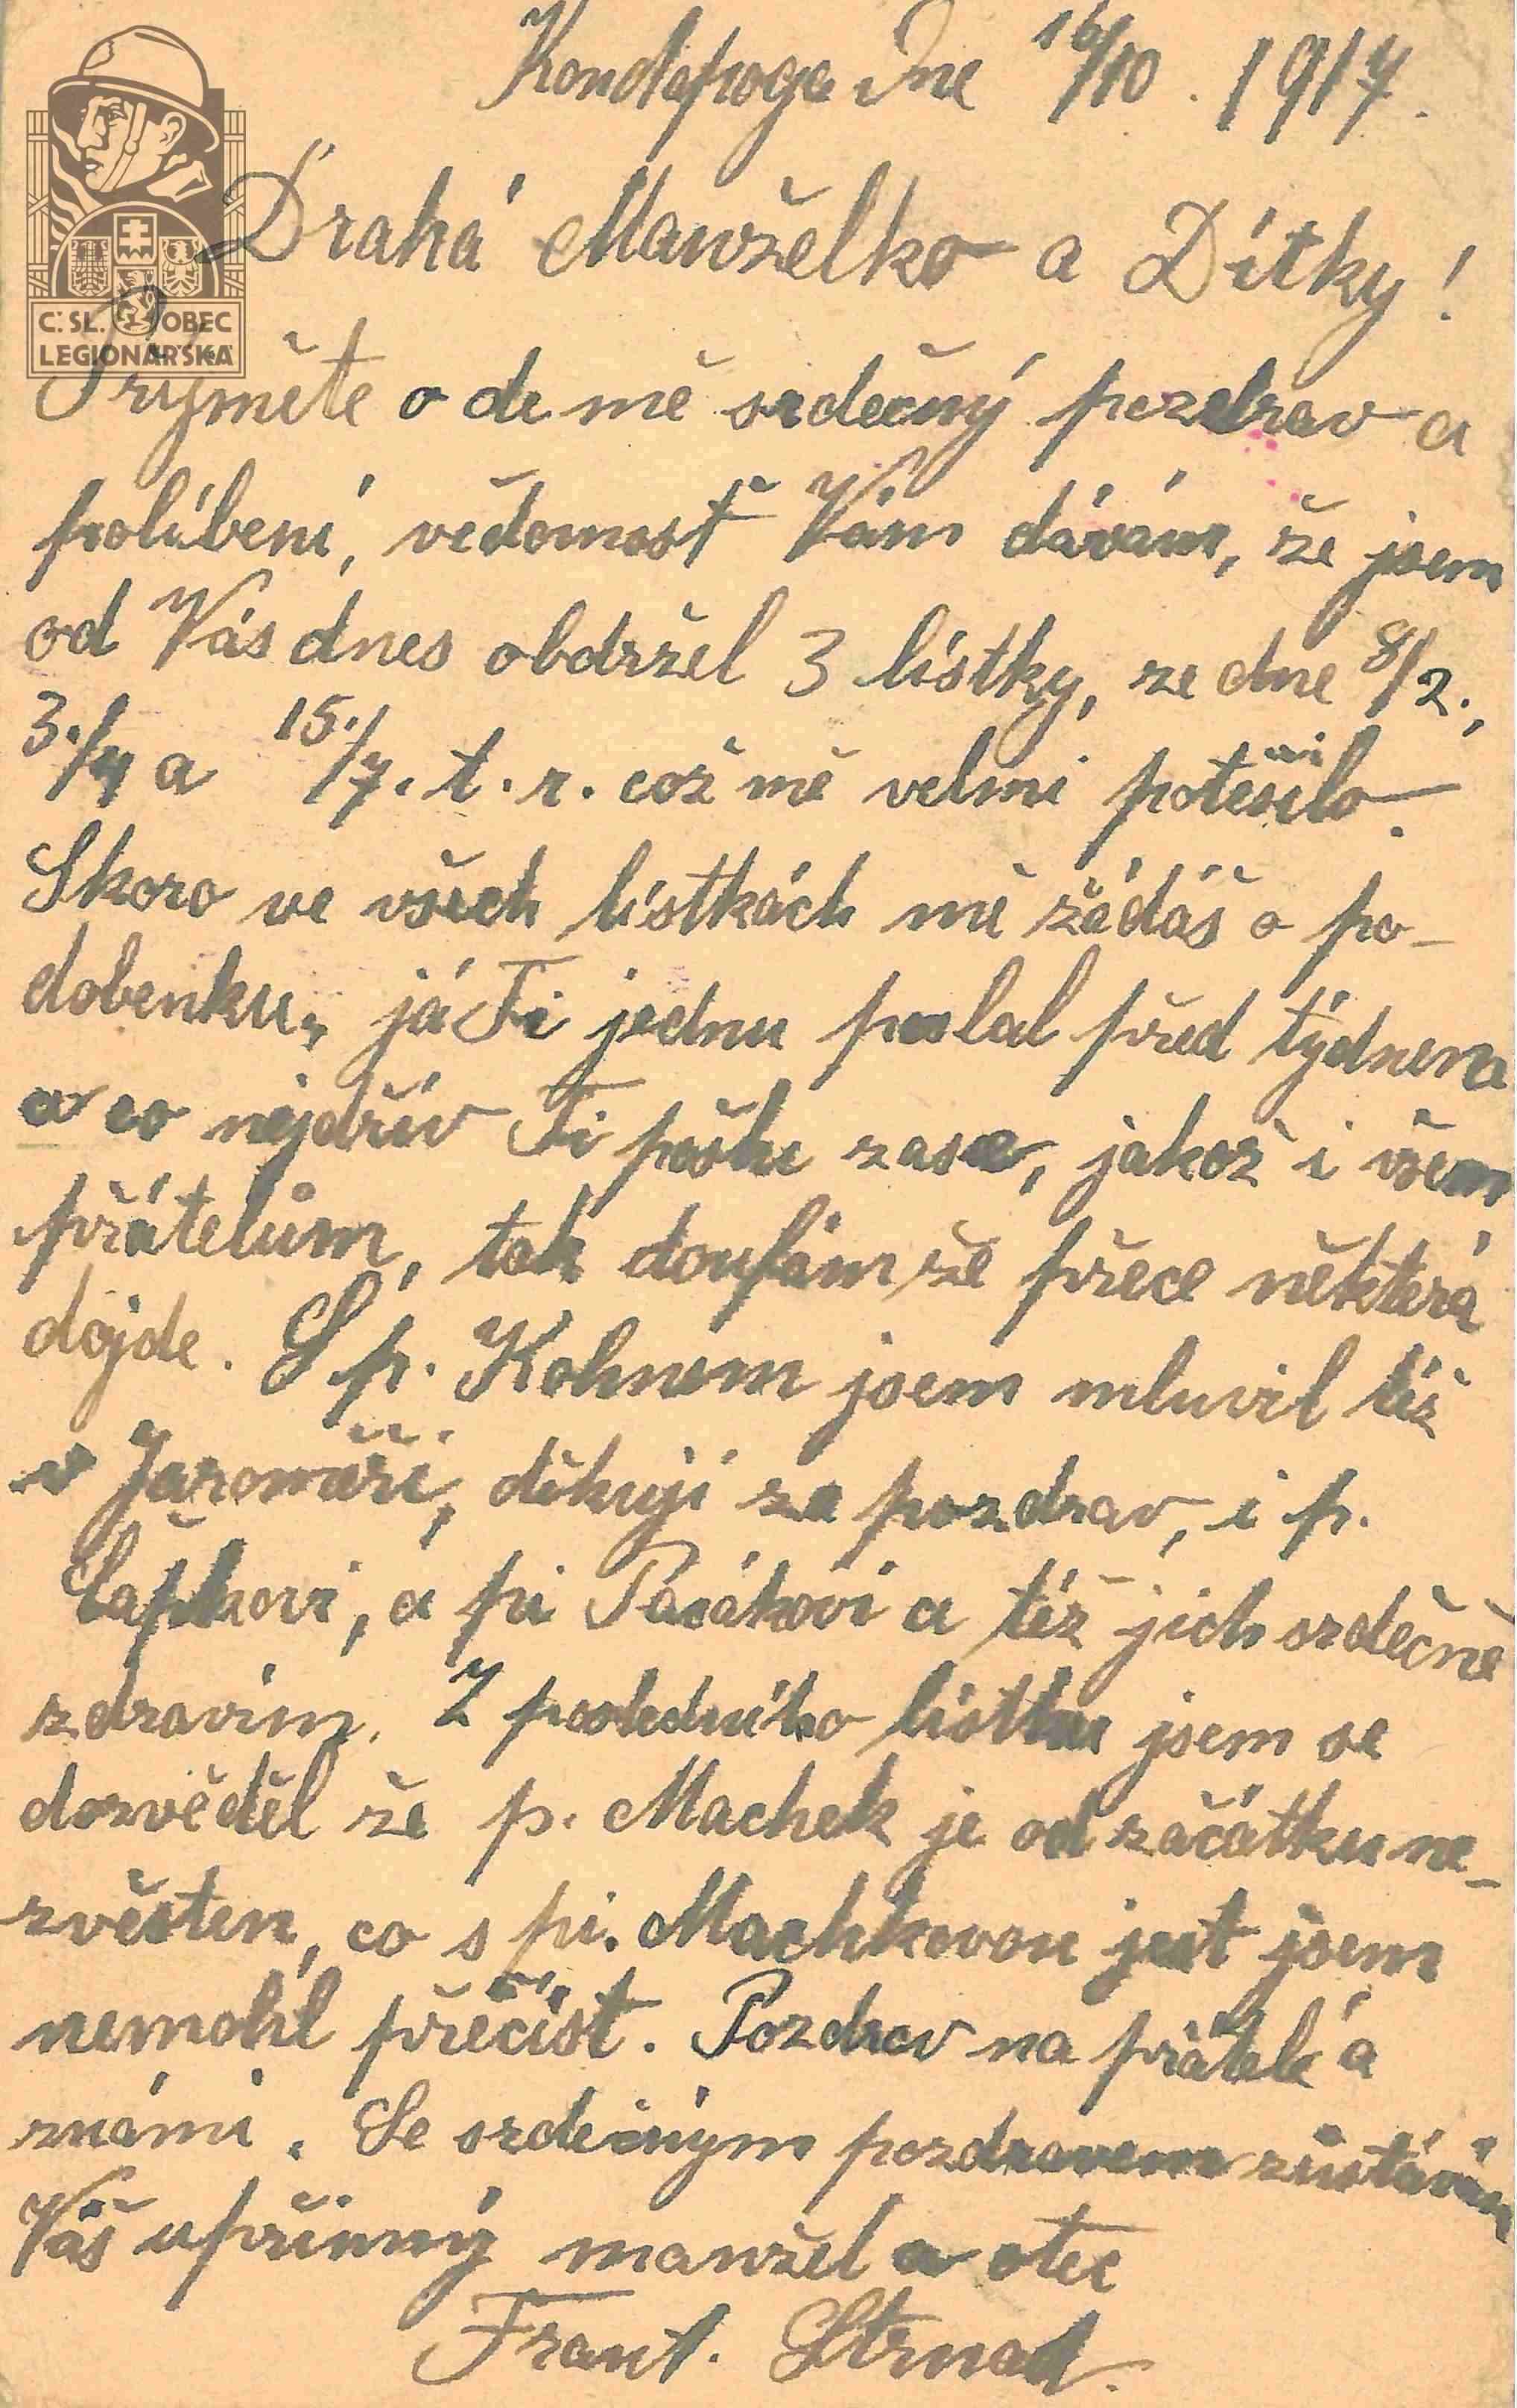 Kondopoga dne 16/10. 1917.
Č: SL. OBEC
LEGIONÁŘSKÁ
Drahá Manželko a Dítky!
Přijměte ode mě srdečný pozdrav a
políbení, vědomosť Vám dávám, že jsem
od Vás dnes obdržel 3 lístky, ze dne 8/2.,
3./4 a 15./7. t. r. což mě velmi potěšilo.
Skoro ve všech lístkách mě žádáš o po-
dobenku, já Ti jednu poslal před týdnem
a co nejdřív Ti pošlu zase, jakož i všem
přátelům, tak doufám že přece některá
dojde. S p. Kohnem jsem mluvil též
v Jaroměři, děkuji za pozdrav, i p.
Čapkovi, a pí Pacákovi a též jich srdečně
zdravím. Z posledního lístku jsem se
dozvěděl že p. Machek je od začátku ne-
zvěsten, co s pí. Machkovou jest jsem
nemohl přečíst. Pozdrav na přátele a
známí. Se srdečným pozdravem zůstávám
Váš upřímný manžel a otec
Frant. Strnad.